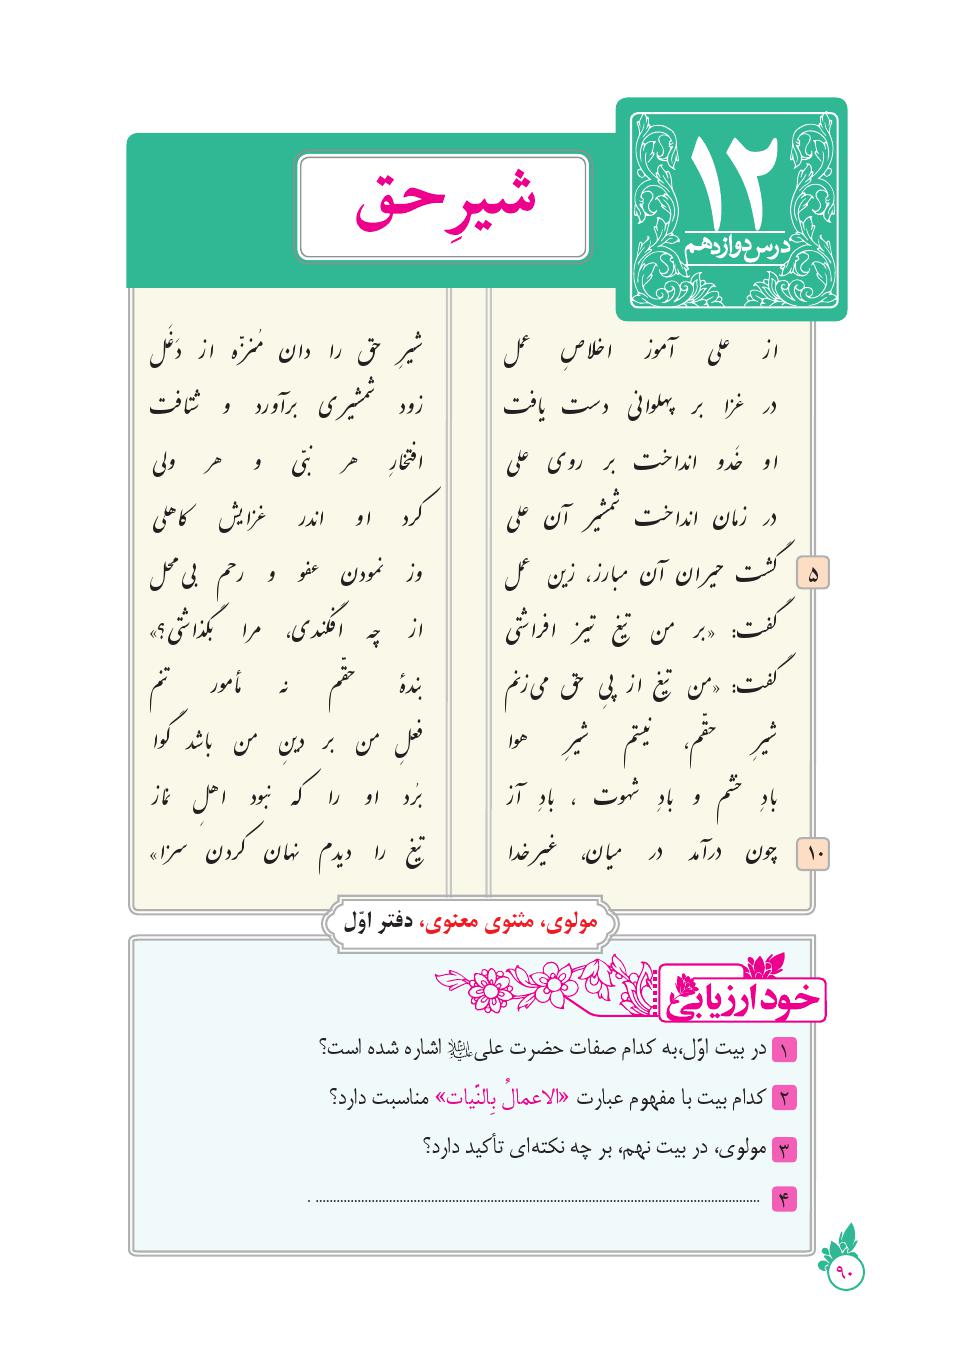 ۱۲
درس دوازدهم
شیرِ حق
از علی آموز اخلاصِ عمل شیرِ حق را دان مُنزّه از دَغَل
در غزا بر پهلوانی دست یافت زود شمشیری برآورد و شتافت
او خَدو انداخت بر روی علی افتخارِ هر نبّی و هر ولی
در زمان انداخت شمشیر آن علی کرد او اندر غزایش کاهلی
۵ گشت حیران آن مبارز، زین عمل وز نمودن عفو و رحم بی‌محل
گفت: «بر من تیغ تیز افراشتی از چه افگندی، مرا بگذاشتی؟»
گفت: «من تیغ از پیِ حق می‌زنم بندهٔ حقّم نه مأمور تنم
شیرِ حقّم، نیستم شیرِ هوا فعلِ من بر دینِ من باشد گوا
بادِ خشم و بادِ شهوت ، بادِ آز بُرد او را که نبود اهلِ نماز
۱۰ چون درآمد در میان، غیرخدا تیغ را دیدم نهان کردن سزا»
مولوی، مثنوی معنوی، دفتر اوّل
خودارزیابی
۱ در بیت اوّل،به کدام صفات حضرت علی علیه‌السلام اشاره شده است؟
۲ کدام بیت با مفهوم عبارت «الاعمالُ بِالنّیات» مناسبت دارد؟
۳ مولوی، در بیت نهم، بر چه نکته‌ای تأکید دارد؟
۴ ........................................ .
۹۰